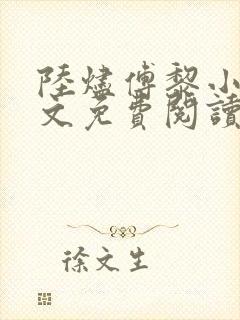 陸燼傅黎小
文免費閱讀
徐文生